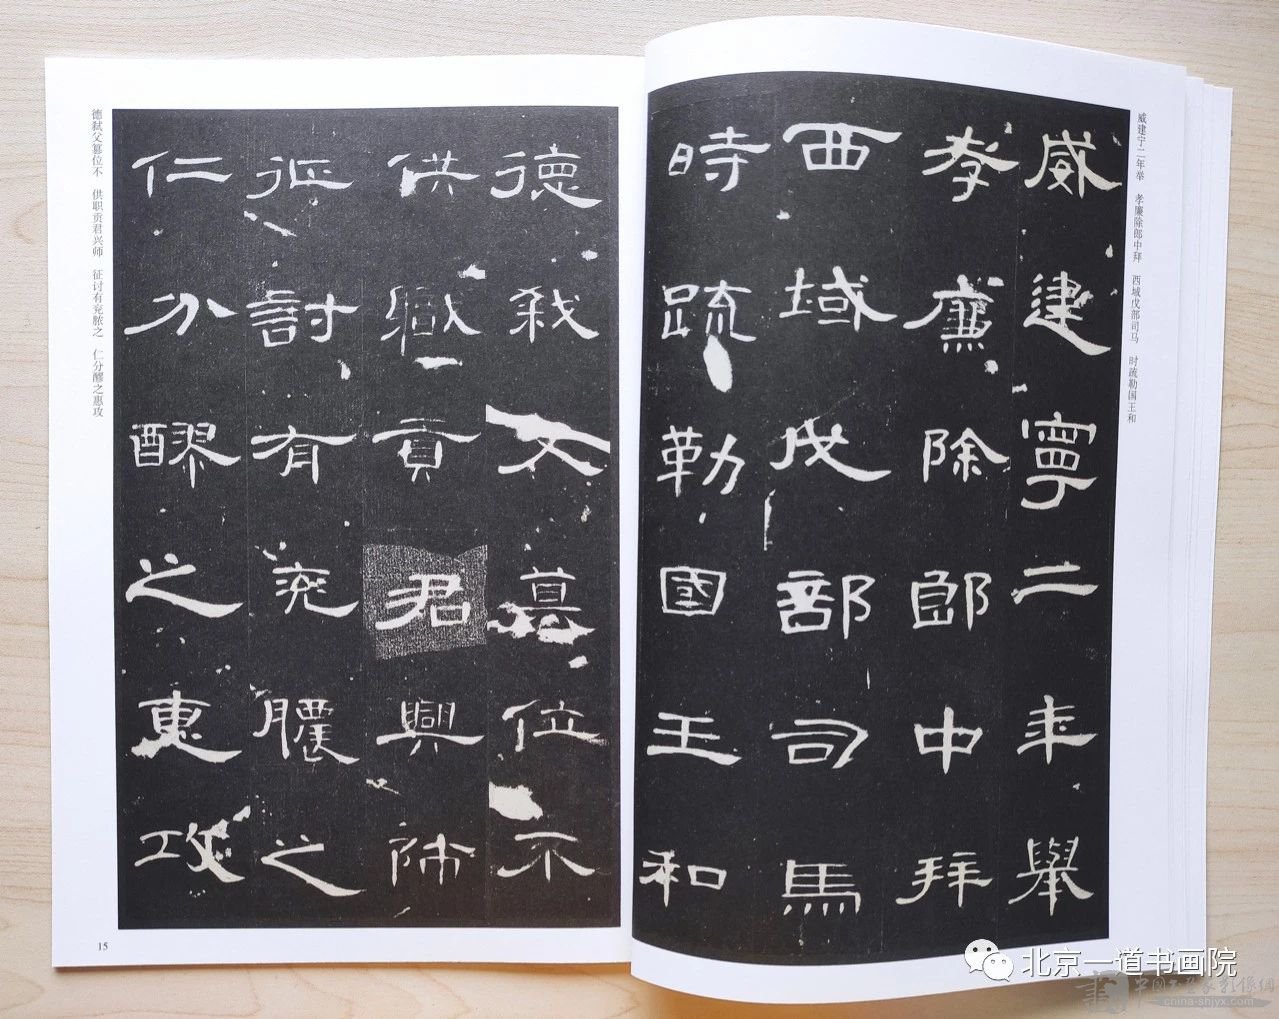 威建宁二年举　孝廉除郎中拜　西域戊部司马　时疏勒国王和
威建寧二年舉
孝廉除郎中拜
西域戊部司馬
時疏勒國王和
德弒父篡位不
供職貢君興師
征討有兖膿之
仁分醪之惠攻
德弑父篡位不　供职贡君兴师　征讨有兖脓之　仁分醪之惠攻
15
北京一道书画院
china-shjyx.com